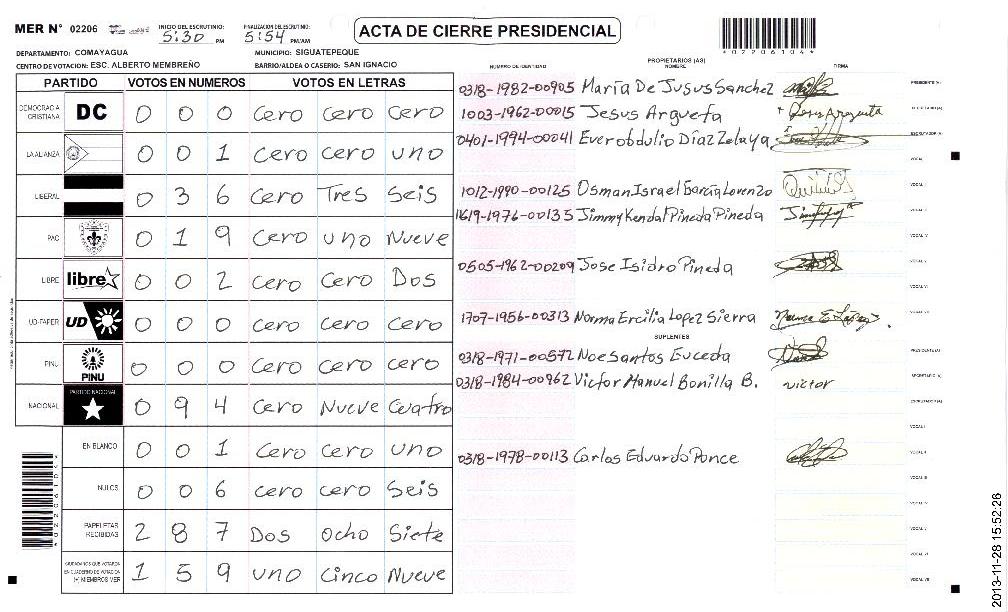 MER N° 02206
INICIO DEL ESCRUTINIO: 5:30 PM
FINALIZACION DEL ESCRUTINIO: 5:54 PM/AM
ACTA DE CIERRE PRESIDENCIAL
DEPARTAMENTO: COMAYAGUA MUNICIPIO: SIGUATEPEQUE
CENTRO DE VOTACION: ESC. ALBERTO MEMBREÑO BARRIO/ALDEA O CASERIO: SAN IGNACIO
PARTIDO VOTOS EN NUMEROS VOTOS EN LETRAS
DEMOCRACIA CRISTIANA DC 0 0 0 Cero Cero Cero
LA ALIANZA 0 0 1 Cero Cero uno
LIBERAL 0 3 6 Cero Tres Seis
PAC 0 1 9 Cero uno Nueve
LIBRE libre 0 0 2 Cero Cero Dos
UD-FAPER UD 0 0 0 Cero Cero Cero
PINU PINU 0 0 0 Cero Cero Cero
NACIONAL PARTIDO NACIONAL 0 9 4 Cero Nueve Cuatro
EN BLANCO 0 0 1 Cero Cero uno
NULOS 0 0 6 Cero Cero Seis
PAPELETAS RECIBIDAS 2 8 7 Dos Ocho Siete
CIUDADANOS QUE VOTARON EN CUADERNO DE VOTACION (+) MIEMBROS MER 1 5 9 uno Cinco Nueve
PROPIETARIOS (AS)
NUMERO DE IDENTIDAD NOMBRE FIRMA
0318-1982-00905 María De Jusus Sanchez PRESIDENTE(A)
1003-1962-00015 Jesus Argueta
0401-1994-00041 Everobdulio Díaz Zelaya ESCRUTADOR(A)
1012-1990-00125 Osman Israel García Lorenzo
1619-1976-00135 Jimmy Kendal Pineda Pineda
0505-1962-00209 Jose Isidro Pineda
1707-1956-00313 Norma Ercilia Lopez Sierra
SUPLENTES
0318-1971-00572 Noe Santos Euceda PRESIDENTE(A)
0318-1984-00962 Victor Manuel Bonilla B. victor SECRETARIO(A)
ESCRUTADOR(A)
0318-1978-00113 Carlos Eduardo Ponce
02206104
2013-11-28 15:52:26